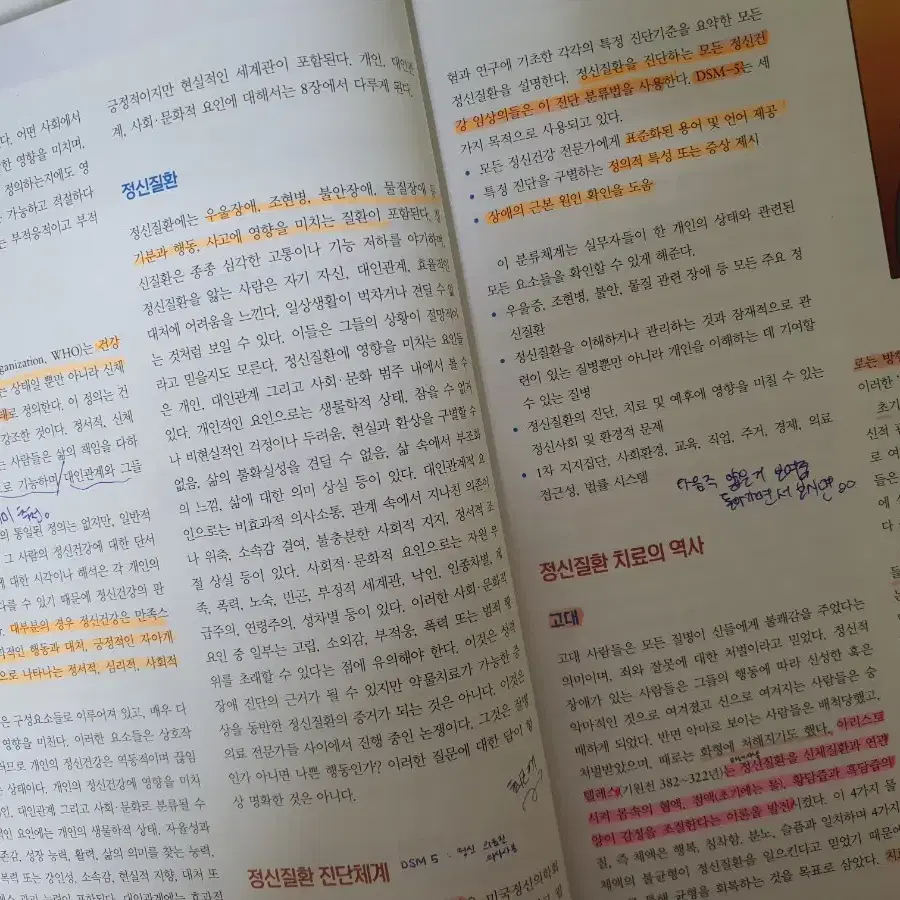 다. 어떤 사회에서
한 영향을 미치며,
정의하는지에도 영
가능하고 적절하다
는 부적응적이고 부적
ganization, WHO)는 건강
는 상태일 뿐만 아니라 신체
태로 정의한다. 이 정의는 건
강조한 것이다. 정서적, 신체
는 사람들은 삶의 책임을 다하
로 기능하며 대인관계와 그들
의 통일된 정의는 없지만, 일반적
그 사람의 정신건강에 대한 단서
에 대한 시각이나 해석은 각 개인의
다를 수 있기 때문에 정신건강의 판
대부분의 경우 정신건강은 만족스
적인 행동과 대처, 긍정적인 자아개
으로 나타나는 정서적, 심리적, 사회적
은 구성요소들로 이루어져 있고, 매우 다
영향을 미친다. 이러한 요소들은 상호작
므로 개인의 정신건강은 역동적이며 끊임
는 상태이다. 개인의 정신건강에 영향을 미치
인, 대인관계 그리고 사회·문화로 분류될 수
적인 요인에는 개인의 생물학적 상태, 자율성과
존감, 성장 능력, 활력, 삶의 의미를 찾는 능력,
폭력 또는 강인성, 소속감, 현실적 지향, 대처 또
긍정적이지만 현실적인 세계관이 포함된다. 개인, 대인관
계, 사회·문화적 요인에 대해서는 8장에서 다루게 된다.
정신질환
정신질환에는 우울장애, 조현병, 불안장애, 물질장애 등
기분과 행동, 사고에 영향을 미치는 질환이 포함된다. 정
신질환은 종종 심각한 고통이나 기능 저하를 야기하며,
정신질환을 앓는 사람은 자기 자신, 대인관계, 효율적인
대처에 어려움을 느낀다. 일상생활이 벅차거나 견딜 수 없
는 것처럼 보일 수 있다. 이들은 그들의 상황이 절망적이
라고 믿을지도 모른다. 정신질환에 영향을 미치는 요인들
은 개인, 대인관계 그리고 사회·문화 범주 내에서 볼 수
있다. 개인적인 요인으로는 생물학적 상태, 참을 수 없거
나 비현실적인 걱정이나 두려움, 현실과 환상을 구별할 수
없음, 삶의 불확실성을 견딜 수 없음, 삶 속에서 부조화
의 느낌, 삶에 대한 의미 상실 등이 있다. 대인관계적 요
인으로는 비효과적 의사소통, 관계 속에서 지나친 의존이
나 위축, 소속감 결여, 불충분한 사회적 지지, 정서적 조
절 상실 등이 있다. 사회적·문화적 요인으로는 자원 부
족, 폭력, 노숙, 빈곤, 부정적 세계관, 낙인, 인종차별, 계
급주의, 연령주의, 성차별 등이 있다. 이러한 사회·문화적
요인 중 일부는 고립, 소외감, 부적응, 폭력 또는 범죄 행
위를 초래할 수 있다는 점에 유의해야 한다. 이것은 성격
장애 진단의 근거가 될 수 있지만 약물치료가 가능한 증
상을 동반한 정신질환의 증거가 되는 것은 아니다. 이것은
의료 전문가들 사이에서 진행 중인 논쟁이다. 그것은 질병
인가 아니면 나쁜 행동인가? 이러한 질문에 대한 답이 항
상 명확한 것은 아니다.
정신질환 진단체계
DSM 5 : 정신
미국정신의학회
현과 연구에 기초한 각각의 특정 진단기준을 요약한 모든
정신질환을 설명한다. 정신질환을 진단하는 모든 정신건
강 임상의들은 이 진단 분류법을 사용한다. DSM-5는 세
가지 목적으로 사용되고 있다.
• 모든 정신건강 전문가에게 표준화된 용어 및 언어 제공
• 특정 진단을 구별하는 정의적 특성 또는 증상 제시
• 장애의 근본 원인 확인을 도움
이 분류체계는 실무자들이 한 개인의 상태와 관련된
모든 요소들을 확인할 수 있게 해준다.
• 우울증, 조현병, 불안, 물질 관련 장애 등 모든 주요 정
신질환
• 정신질환을 이해하거나 관리하는 것과 잠재적으로 관
련이 있는 질병뿐만 아니라 개인을 이해하는 데 기여할
수 있는 질병
• 정신질환의 진단, 치료 및 예후에 영향을 미칠 수 있는
정신사회 및 환경적 문제
• 1차 지지집단, 사회환경, 교육, 직업, 주거, 경제, 의료
접근성, 법률 시스템
정신질환 치료의 역사
고대
고대 사람들은 모든 질병이 신들에게 불쾌감을 주었다는
의미이며, 죄와 잘못에 대한 처벌이라고 믿었다. 정신적
장애가 있는 사람들은 그들의 행동에 따라 신성한 혹은
악마적인 것으로 여겨졌고 신으로 여겨지는 사람들은 숭
배하게 되었다. 반면 악마로 보이는 사람들은 배척당했고,
처벌받았으며, 때로는 화형에 처해지기도 했다. 아리스토
텔레스(기원전 382~322년)는 정신질환을 신체질환과 연관
시켜 몸속의 혈액, 침액(초기에는 물), 황담즙과 흑담즙의
양이 감정을 조절한다는 이론을 발전시켰다. 이 4가지 물
질, 즉 체액은 행복, 침착함, 분노, 슬픔과 일치하며 4가지
체액의 불균형이 정신질환을 일으킨다고 믿었기 때문에
통해 균형을 회복하는 것을 목표로 삼았다.
로는 방
이러한
초기
신적
로 여
들은
에
다